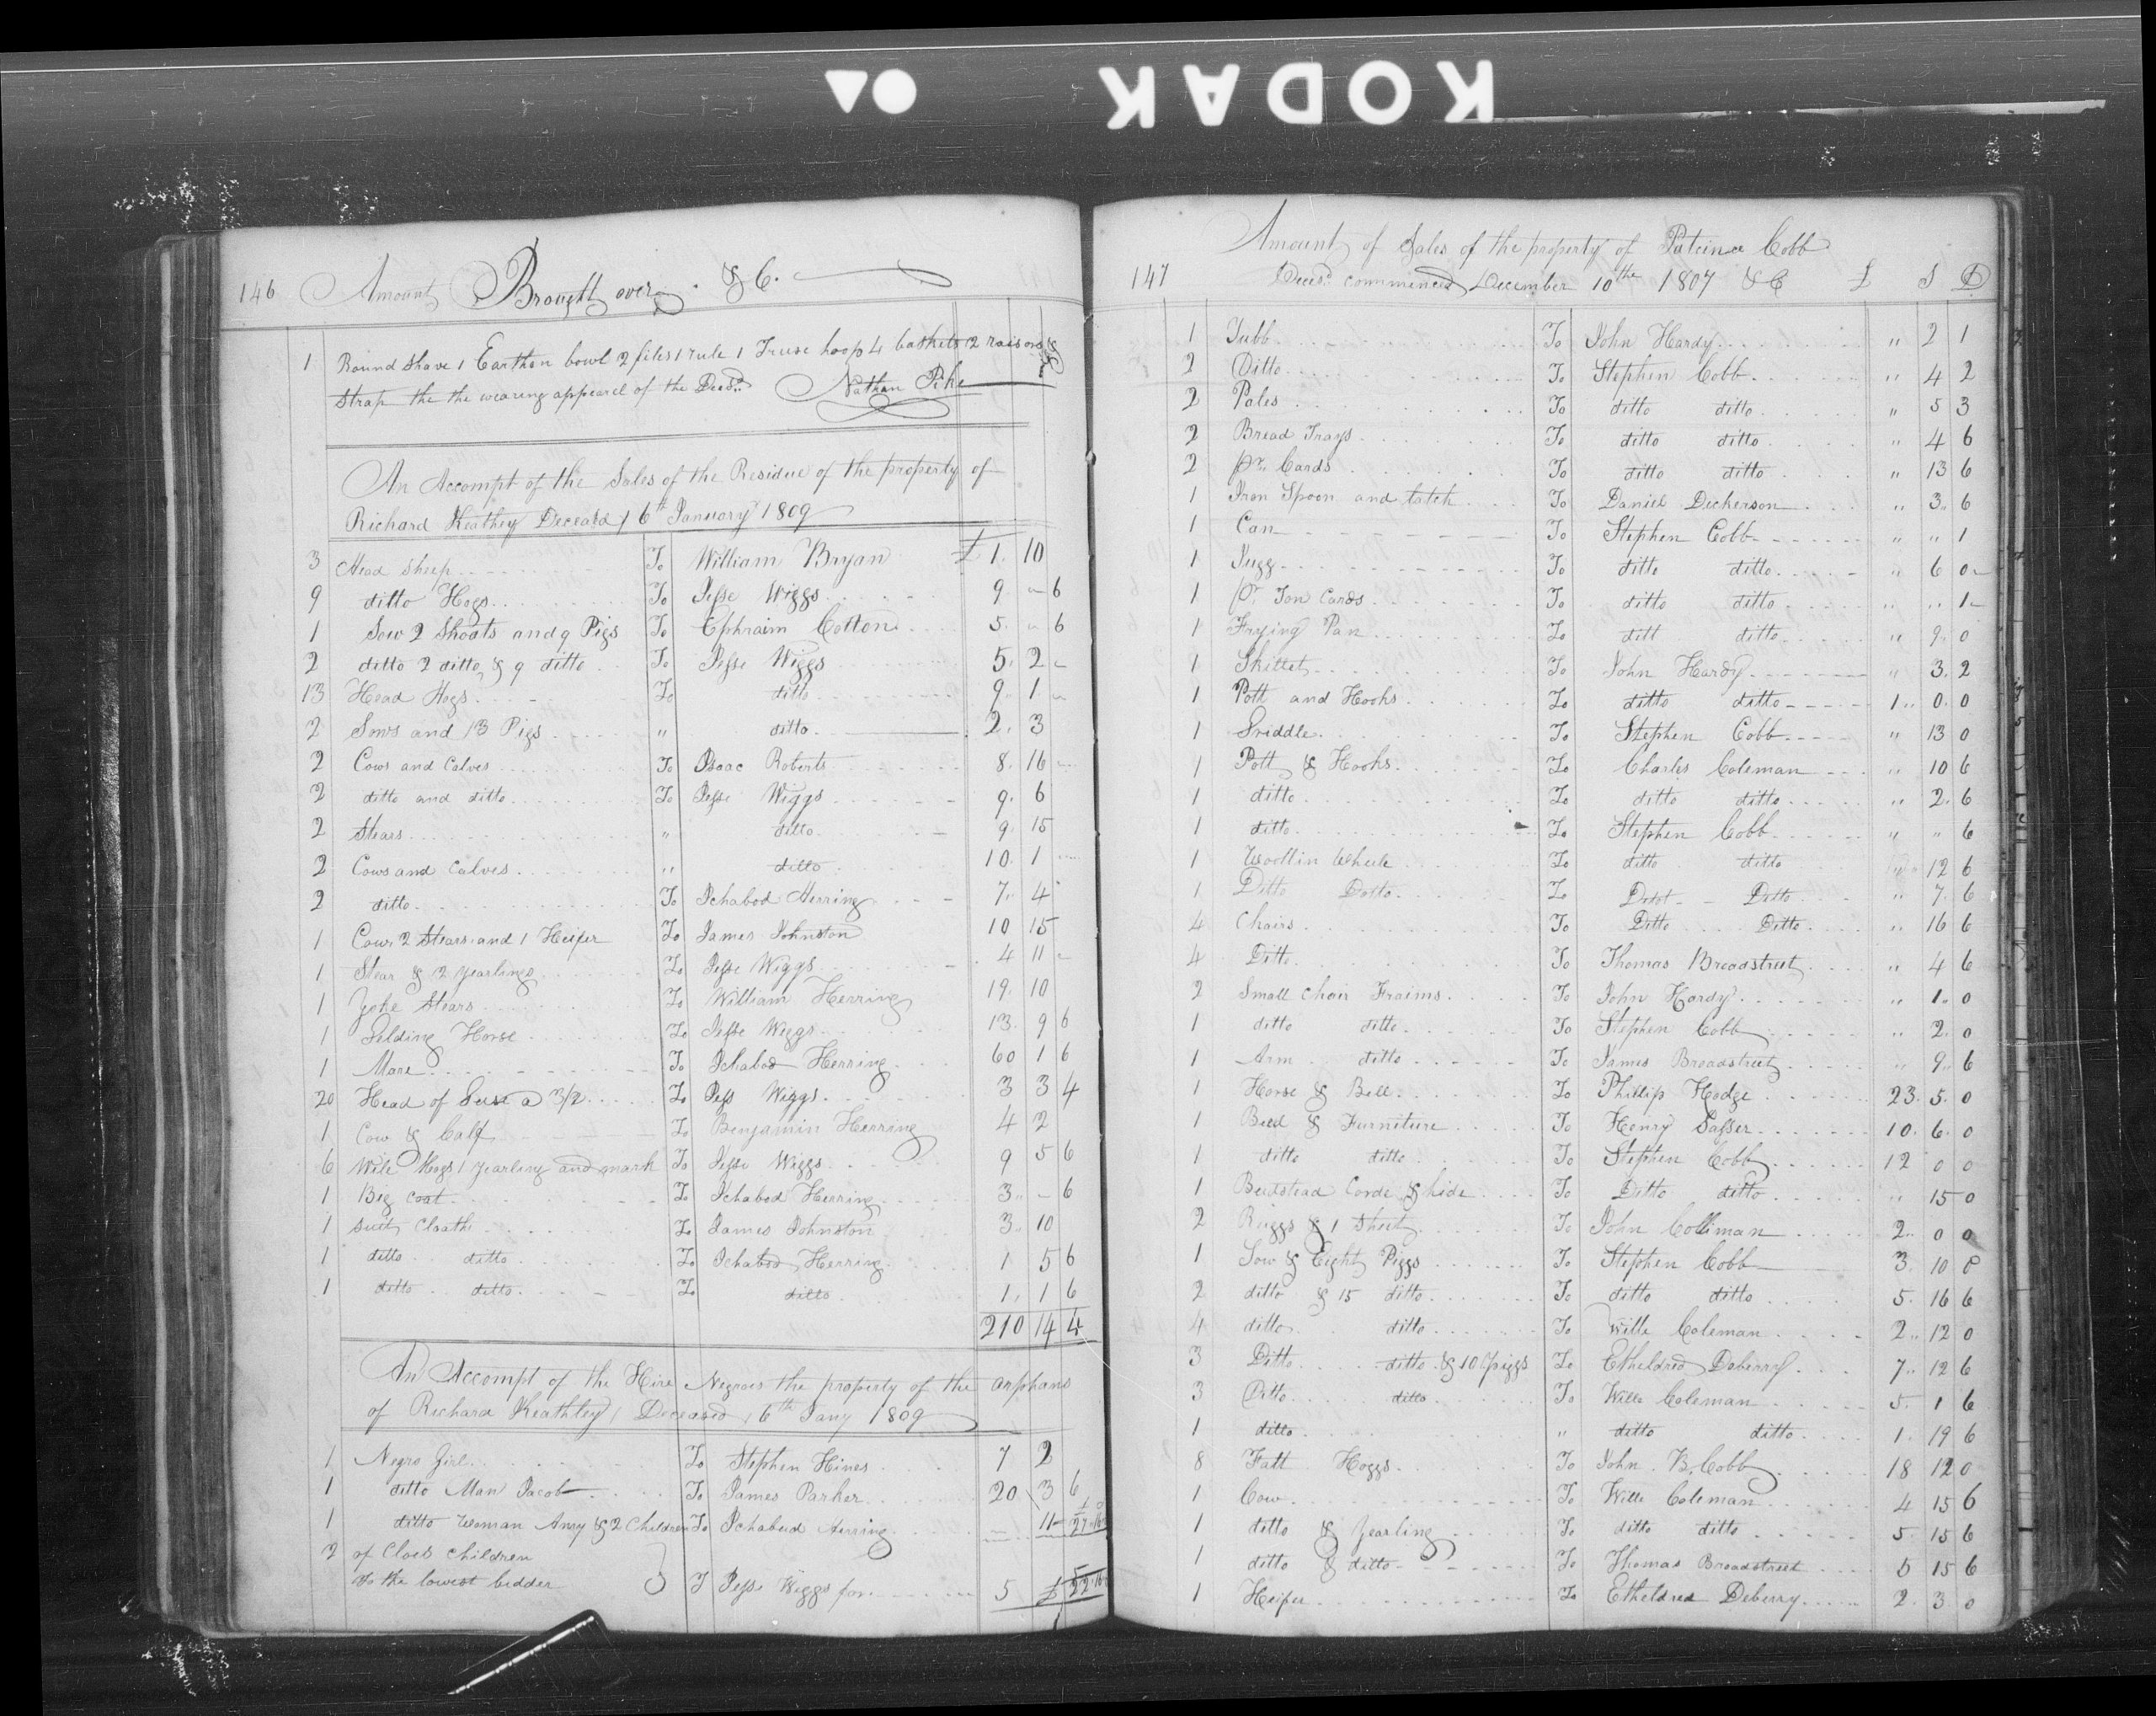 KODAK
146 Amount Brought over &C.
1 Round shave 1 Earthen bowl 2 files 1 rule 1 Truse hoop 4 baskets 2 raisors &
strap the the wearing appearel of the Decd. Nathan Pike
An Accompt of the Sales of the Residue of the property of
Richard Keathey Deceasd 6th January 1809
3 Head sheep To William Bryan £ 1. 10
9 ditto Hogs To Jesse Wiggs 9. " 6
1 Sow 2 Shoats and 9 Pigs To Ephraim Cotton 5. " 6
2 ditto 2 ditto & 9 ditto To Jesse Wiggs 5. 2 "
13 Head Hogs To ditto 9. 1 "
2 Sows and 13 Pigs " ditto 2. 3
2 Cows and Calves To Isaac Roberts 8. 16
2 ditto and ditto To Jesse Wiggs 9. 6
2 Stears " ditto 9. 15
2 Cows and Calves " ditto 10. 1
2 ditto To Ichabod Herring 7. 4
1 Cow 2 Stears and 1 Heifer To James Johnston 10 15
1 Stear & 2 yearlings To Jesse Wiggs 4 11
1 Yoke Stears To William Herring 19. 10
1 Gelding Horse To Jesse Wiggs 13. 9 6
1 Mare To Ichabod Herring 60 1 6
20 Head of Geese a 3/2 To Jess Wiggs 3 3 4
1 Cow & Calf To Benjamin Herring 4 2
6 Wile Hogs 1 yearling and mark To Jesse Wiggs 9 5 6
1 Big coat To Ichabod Herring 3. - 6
1 suit Cloathe To James Johnston 3. 10
1 ditto ditto To Ichabod Herring 1 5 6
1 ditto ditto To ditto 1. 1 6
210 14 4
An Accompt of the Hire Negroes the property of the orphans
of Richard Keathley Deceased 6th Jany 1809
1 Negro Girl To Stephen Hines 7 2
1 ditto Man Jacob To James Parker 20 3 6
1 ditto Woman Amy & 2 Children To Ichabud Herring — 11
2 of Cloes Children
to the lowest bidder T Jesse Wiggs for 5 £
147 Amount of Sales of the property of Patcince Cobb
Decesd. commenced December 10the 1807 &C £ S D
1 Tubb To John Hardy " 2 1
2 Ditto To Stephen Cobb " 4 2
2 Pales To ditto ditto " 5 3
2 Bread Trays To ditto ditto " 4 6
2 pr. Cards To ditto ditto " 13 6
1 Iron Spoon and latch To Daniel Dickerson " 3. 6
1 Can To Stephen Cobb " " 1
1 Jugg To ditto ditto " 6 0
1 pr. Ton Cards To ditto ditto " " 1
1 Frying Pan To ditt ditto " 9. 0
1 Skillet To John Hardy " 3. 2
1 Pott and Hooks To ditto ditto 1.. 0. 0
1 Griddle To Stephen Cobb " 13 0
1 Pott & Hooks To Charles Coleman " 10 6
1 ditto To ditto ditto " 2. 6
1 ditto To Stephen Cobb " " 6
1 Woollin Wheele To ditto ditto " 12 6
1 Ditto Dotto To Ditot Ditto " 7. 6
4 Chairs To Ditto Ditto " 16 6
4 Ditto To Thomas Broadstreet " 4 6
2 Small Chair Fraims To John Hardy " 1. 0
1 ditto ditto To Stephen Cobb " 2. 0
1 Arm ditto To James Broadstreet " 9. 6
1 Horse & Bell To Phillip Hodge 23. 5. 0
1 Bead & Furniture To Henry Sasser 10. 6. 0
1 ditto ditto To Stephen Cobb 12 0 0
1 Beadstead Corde & hide To Ditto ditto " 15 0
2 Ruggs & 1 Sheet To John Colliman 2.. 0 0
1 Sow & Eight Piggs To Stephen Cobb 3. 10 0
2 ditto & 15 ditto To ditto ditto 5. 16 6
4 ditto ditto To Wille Coleman 2.. 12 0
3 Ditto ditto & 10 Piggs To Etheldred Deberry 7.. 12 6
3 Ditto ditto To Wille Coleman 5. 1 6
1 ditto " ditto ditto 1. 19 6
8 Fatt Hoggs To John B. Cobb 18 12 0
1 Cow To Wille Coleman 4 15 6
1 ditto & Yearling To ditto ditto 5. 15 6
1 ditto & ditto To Thomas Broadstreet 5 15 6
1 Heifer To Etheldred Deberry 2. 3. 0